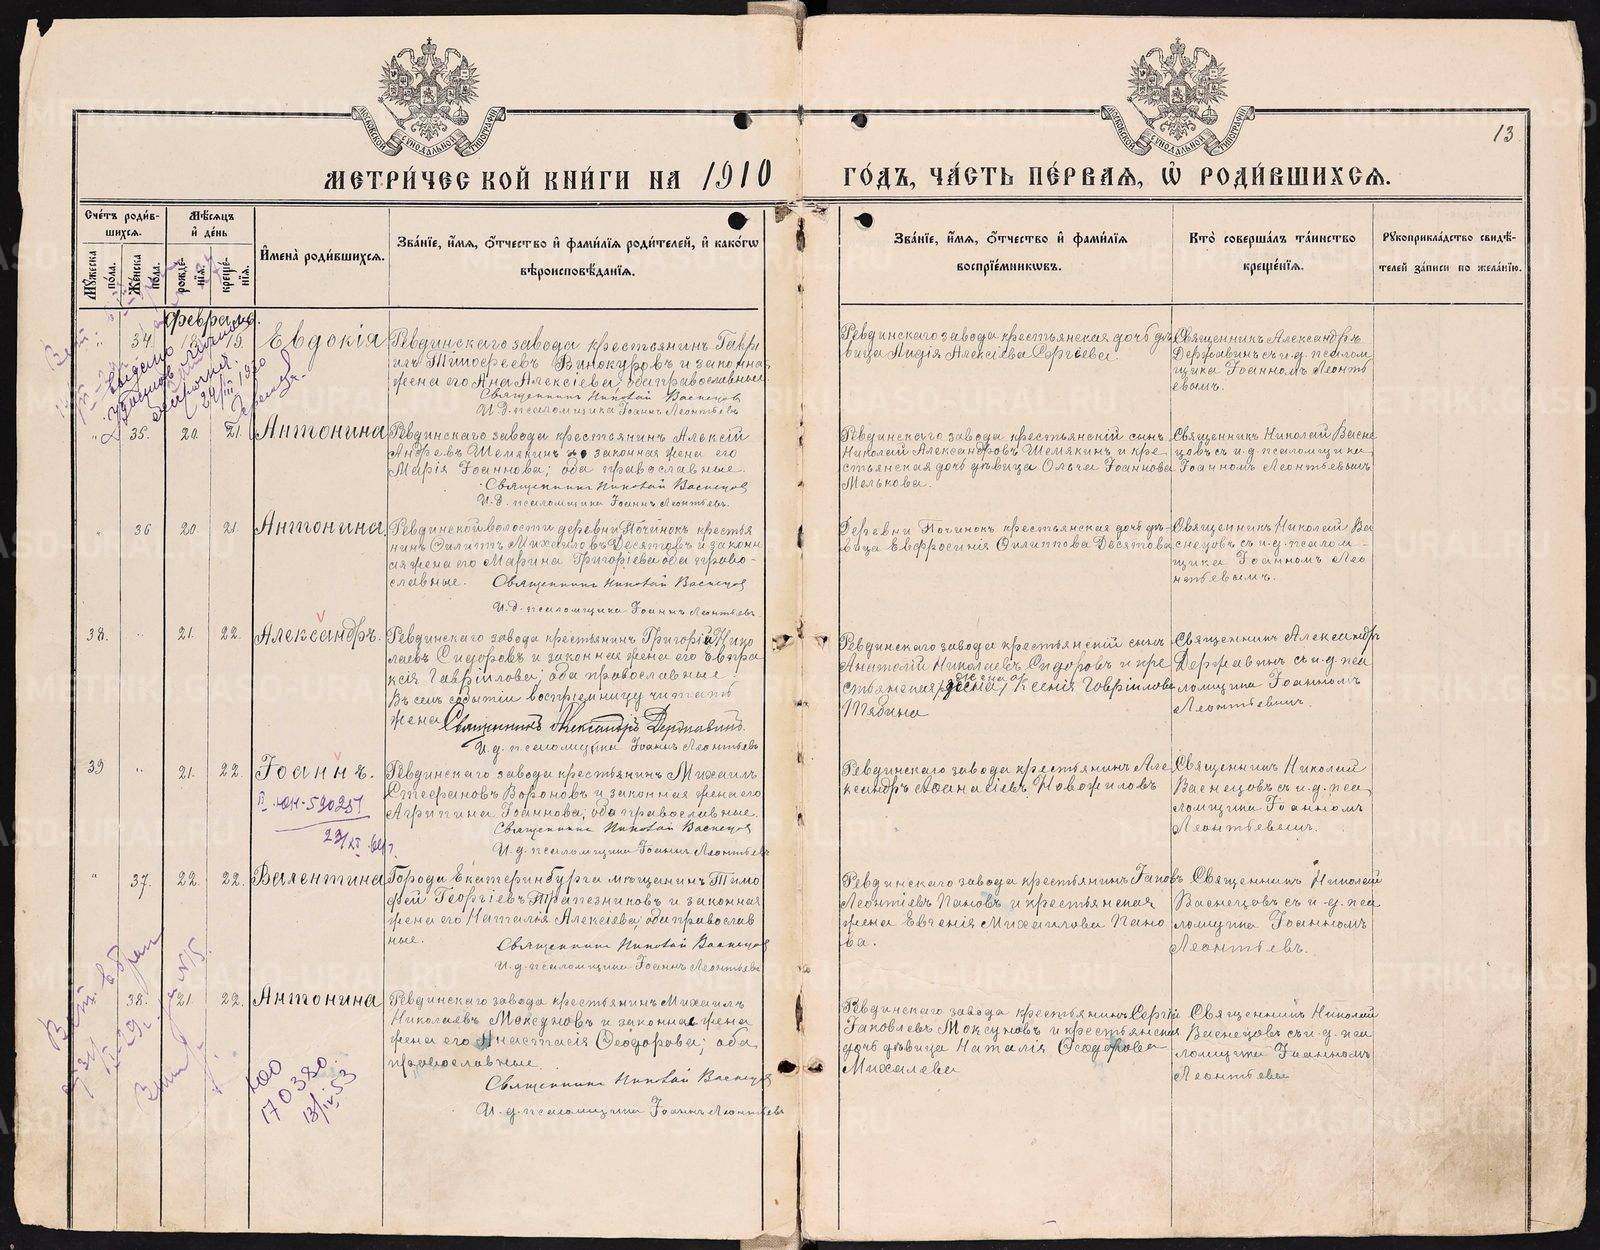 МОСКОВСКОЙ СѴНОДАЛЬНОЙ ТИПОГРАФІИ
МОСКОВСКОЙ СѴНОДАЛЬНОЙ ТИПОГРАФІИ
13
МЕТРИ́ЧЕСКОЙ КНИ́ГИ НА 1910 ГО́ДЪ, ЧА́СТЬ ПЕ́РВАЯ, Ѡ҆ РОДИ́ВШИХСЯ.
Сче́тъ роди́в-
шихся.
Мѣ́сяцъ
и҆ де́нь
Мꙋ́жеска
по́ла.
Же́нска
по́ла.
рожде́-
нїѧ.
креще́-
нїѧ.
И҆мена̀ роди́вшихся.
Зва́нїе, и҆́мя, ѻ҆́тчество и҆ фами́лїя роди́телей, и҆ како́гѡ
вѣроисповѣ́данїя.
Зва́нїе, и҆́мя, ѻ҆́тчество и҆ фами́лїя
воспрїе́мникѡвъ.
Кто̀ соверша́лъ та́инство
креще́нїя.
Рꙋкоприкла́дство свидѣ́-
телей за́писи по жела́нїю.
Февраль.
34. 18. 19. Евдокія
Ревдинскаго завода крестьянинъ Гаври
илъ Тимофеевъ Винокуровъ и законная
жена его Анна Алексіева, оба православные
Священникъ Николай Васнецов
И. Д. псаломщика Іоаннъ Леонтьевъ
Ревдинскаго завода крестьянская дочь дѣ
вица Лидія Алексіева Сергѣева.
Священникъ Александръ
Державинъ съ и.д. псалом
щика Іоанномъ Леонть
евымъ.
29/III 1920
" 35. 20. 21. Антонина
Ревдинскаго завода крестьянинъ Алексій
Андреевъ Шемякинъ и законная жена его
Марія Іоаннова; оба православные.
Священникъ Николай Васнецов
И. Д. псаломщика Іоаннъ Леонтьевъ.
Ревдинскаго завода крестьянскій сынъ
Николай Александровъ Шемякинъ и кре
стьянская дочь дѣвица Ольга Іоаннова
Мелькова.
Священникъ Николай Васне
цовъ съ и.д. псаломщика
Іоанномъ Леонтьевымъ
" 36 20. 21 Антонина.
Ревдинской волости деревни Починокъ крестья
нинъ Филиппъ Михаиловъ Десятовъ и законн
ая жена его Марина Григоріева оба право-
славные. Священникъ Николай Васнецов
И. Д. псаломщика Іоаннъ Леонтьевъ.
Деревни Починокъ крестьянская дочь дѣ
вица Евфросинія Филиппова Десятова
Священникъ Николай Ва
снецовъ съ и.д. псалом-
щика Іоанномъ Лео
нтьевымъ.
38. " 21. 22. Александръ.
Ревдинскаго завода крестьянинъ Григорій Нико
лаевъ Сидоровъ и законная жена его Евпра
ксія Гавріилова; оба православные.
Въ семъ событіи воспріемницу читать
жена Священникъ Александръ Державинъ.
И. д. псаломщика Іоаннъ Леонтьевъ
Ревдинскаго завода крестьянскій сынъ
Анатолій Николаевъ Сидоровъ и кре
стьянская жена Ксенія Гавріилова
Тябина
Священникъ Александръ
Державинъ съ и.д. пса
ломщика Іоанномъ
Леонтьевымъ.
39 " 21. 22. Іоаннъ.
II ЮН-590251
23/XI
Ревдинскаго завода крестьянинъ Михаилъ
Стефановъ Вороновъ и законная жена его
Агрипина Іоаннова; оба православные.
Священникъ Николай Васнецов
И. д. псаломщика Іоаннъ Леонтьевъ
Ревдинскаго завода крестьянинъ Але
ксандръ Аѳанасіевъ Новожиловъ
Священникъ Николай
Васнецовъ съ и.д. пса
ломщика Іоанномъ
Леонтьевымъ.
" 37. 22. 22. Валентина
Города Екатеринбурга мѣщанинъ Тимо
фей Георгіевъ Трапезниковъ и законная
жена его Наталія Алексіева; оба православ
ные.
Священникъ Николай Васнецов
И. д. псаломщика Іоаннъ Леонтьевъ
Ревдинскаго завода крестьянинъ Іаковъ
Леонтіевъ Пановъ и крестьянская
жена Евгенія Михаилова Пано
ва.
Священникъ Николай
Васнецовъ съ и.д. пса
ломщика Іоанномъ
Леонтьевъ.
38. 21. 22. Антонина
Ревдинскаго завода крестьянинъ Михаилъ
Николаевъ Моксуновъ и законная жена
жена его Анастасія Ѳеодорова; оба
православные.
Священникъ Николай Васнецов
И. д. псаломщика Іоаннъ Леонтьевъ
Ревдинскаго завода крестьянинъ Сергій
Іаковлевъ Моксуновъ и крестьянская
дочь дѣвица Наталія Ѳеодорова
Михалева
Священникъ Николай
Васнецовъ съ и.д. пса
ломщика Іоанномъ
Леонтьевы
170380
13/IV 53
METRIKI.GASO-URAL.RU